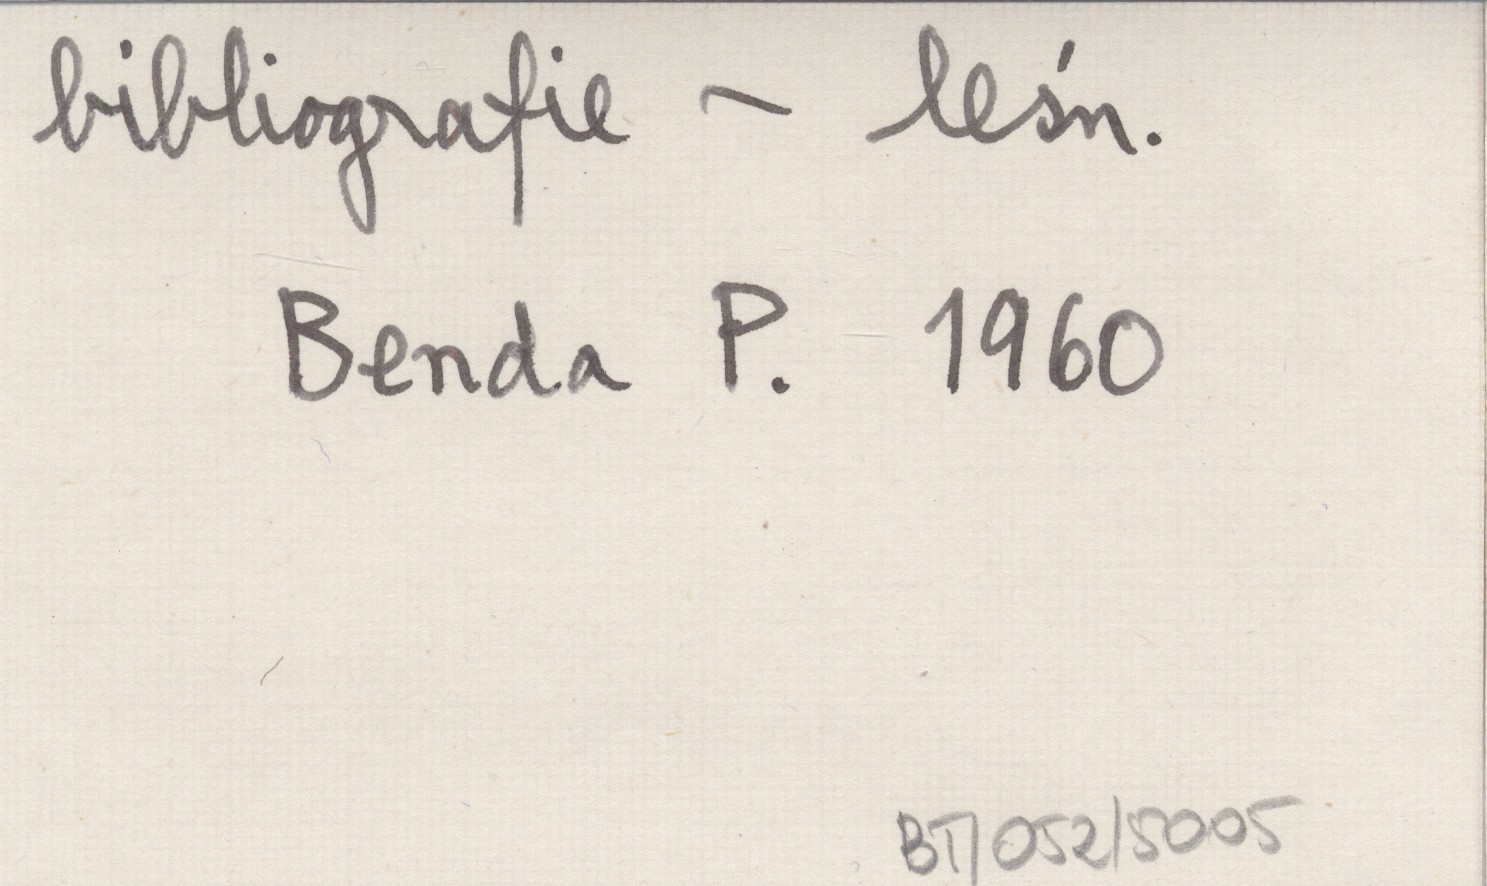 bibliografie - leśn.
Benda P. 1960
BT/052/5005